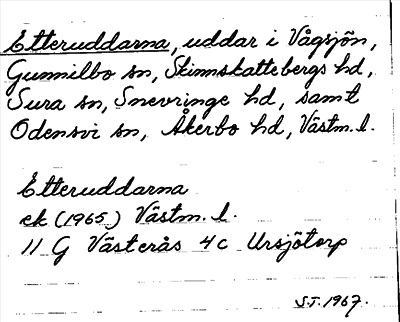 Etteruddarna, uddar i Vågsjön,
Gunnilbo sn, Skinnskattebergs hd,
Sura sn, Snevringe hd, samt
Odensvi sn, Åkerbo hd, Västm. l.
Etteruddarna
ek (1965) Västm. l.
11 G Västerås 4c Ursjötorp
S.T. 1967.